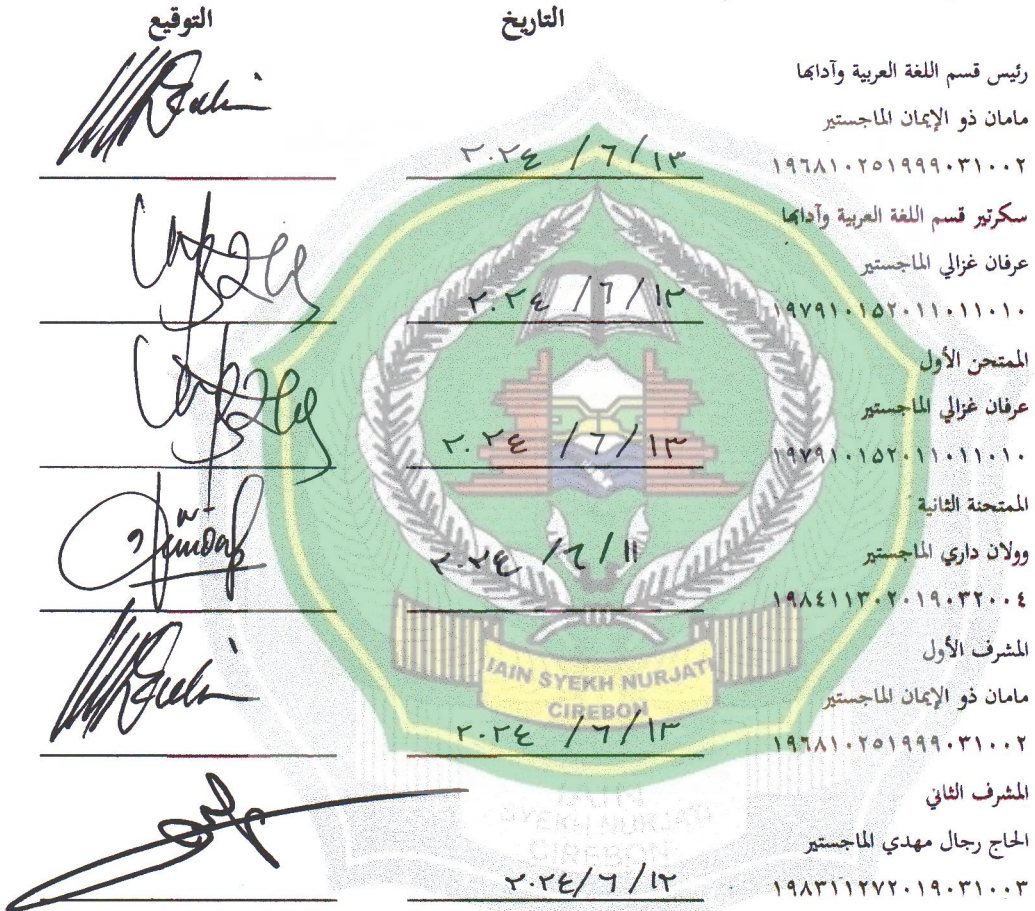 التاريخ التوقيع
رئيس قسم اللغة العربية وآدابها
مامان ذو الإيمان الماجستير
١٩٦٨١٠٢٥١٩٩٩٠٣١٠٠٢ ١٣ / ٦ / ٢٠٢٤
سكرتير قسم اللغة العربية وآدابها
عرفان غزالي الماجستير
١٩٧٩١٠١٥٢٠١١٠١١٠١٠ ١٣ / ٦ / ٢٠٢٤
الممتحن الأول
عرفان غزالي الماجستير
١٩٧٩١٠١٥٢٠١١٠١١٠١٠ ١٣ / ٦ / ٢٠٢٤
الممتحنة الثانية
وولان داري الماجستير
١٩٨٤١١٣٠٢٠١٩٠٣٢٠٠٤ ١١ / ٦ / ٢٠٢٤
المشرف الأول
مامان ذو الإيمان الماجستير
١٩٦٨١٠٢٥١٩٩٩٠٣١٠٠٢ ١٣ / ٦ / ٢٠٢٤
المشرف الثاني
الحاج رجال مهدي الماجستير
١٩٨٣١١٢٧٢٠١٩٠٣١٠٠٣ ١٢ / ٦ / ٢٠٢٤
IAIN SYEKH NURJATI
CIREBON
IAIN
SYEKH NURJATI
CIREBON